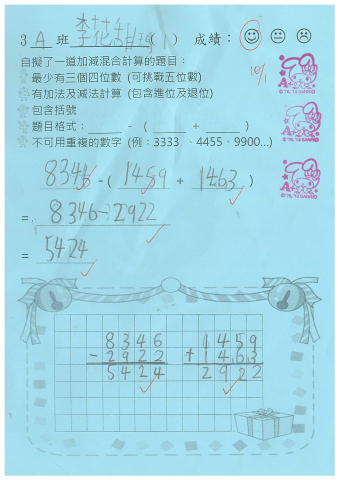 3 A 班 李花甜 ( ) 成績：
10/1
自擬了一道加減混合計算的題目：
最少有三個四位數 (可挑戰五位數)
有加法及減法計算 (包含進位及退位)
包含括號
題目格式：_____ - ( _____ + _____ )
不可用重複的數字 (例：3333、4455、9900...)
8346 - ( 1459 + 1463 )
= 8346-2922
= 5424
8346 1459
- 2922 + 1463
5424 2922